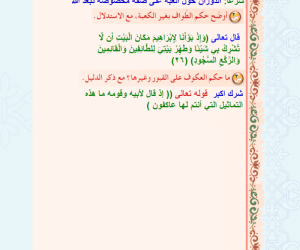 شرعا: الدوران حول الكعبة على صفة مخصوصة تعبداً لله
٢ أوضح حكم الطواف بغير الكعبة، مع الاستدلال.
قال تعالى (وَإِذْ بَوَّأْنَا لِإِبْرَاهِيمَ مَكَانَ الْبَيْتِ أَن لَّا
تُشْرِكْ بِي شَيْئًا وَطَهِّرْ بَيْتِيَ لِلطَّائِفِينَ وَالْقَائِمِينَ
وَالرُّكَّعِ السُّجُودِ) (٢٦)
٣ ما حكم العكوف على القبور وغيرها؟ مع ذكر الدليل.
شرك اكبر قوله تعالى (( إذ قال لأبيه وقومه ما هذه
التماثيل التي أنتم لها عاكفون )